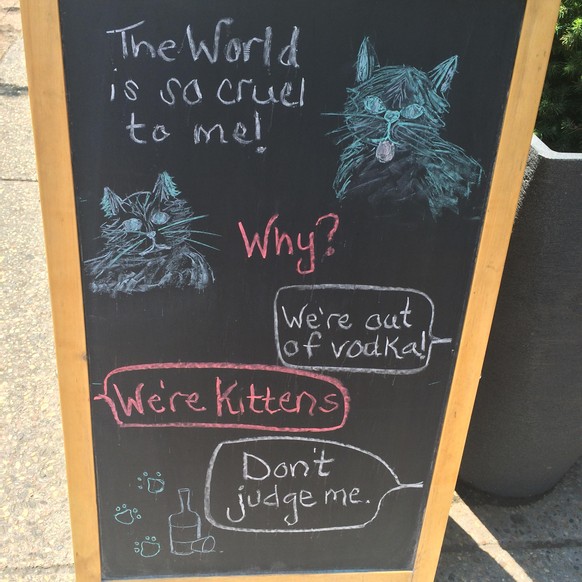 The World
is so cruel
to me!
Why?
We're out
of vodka!
We're Kittens
Don't
judge me.